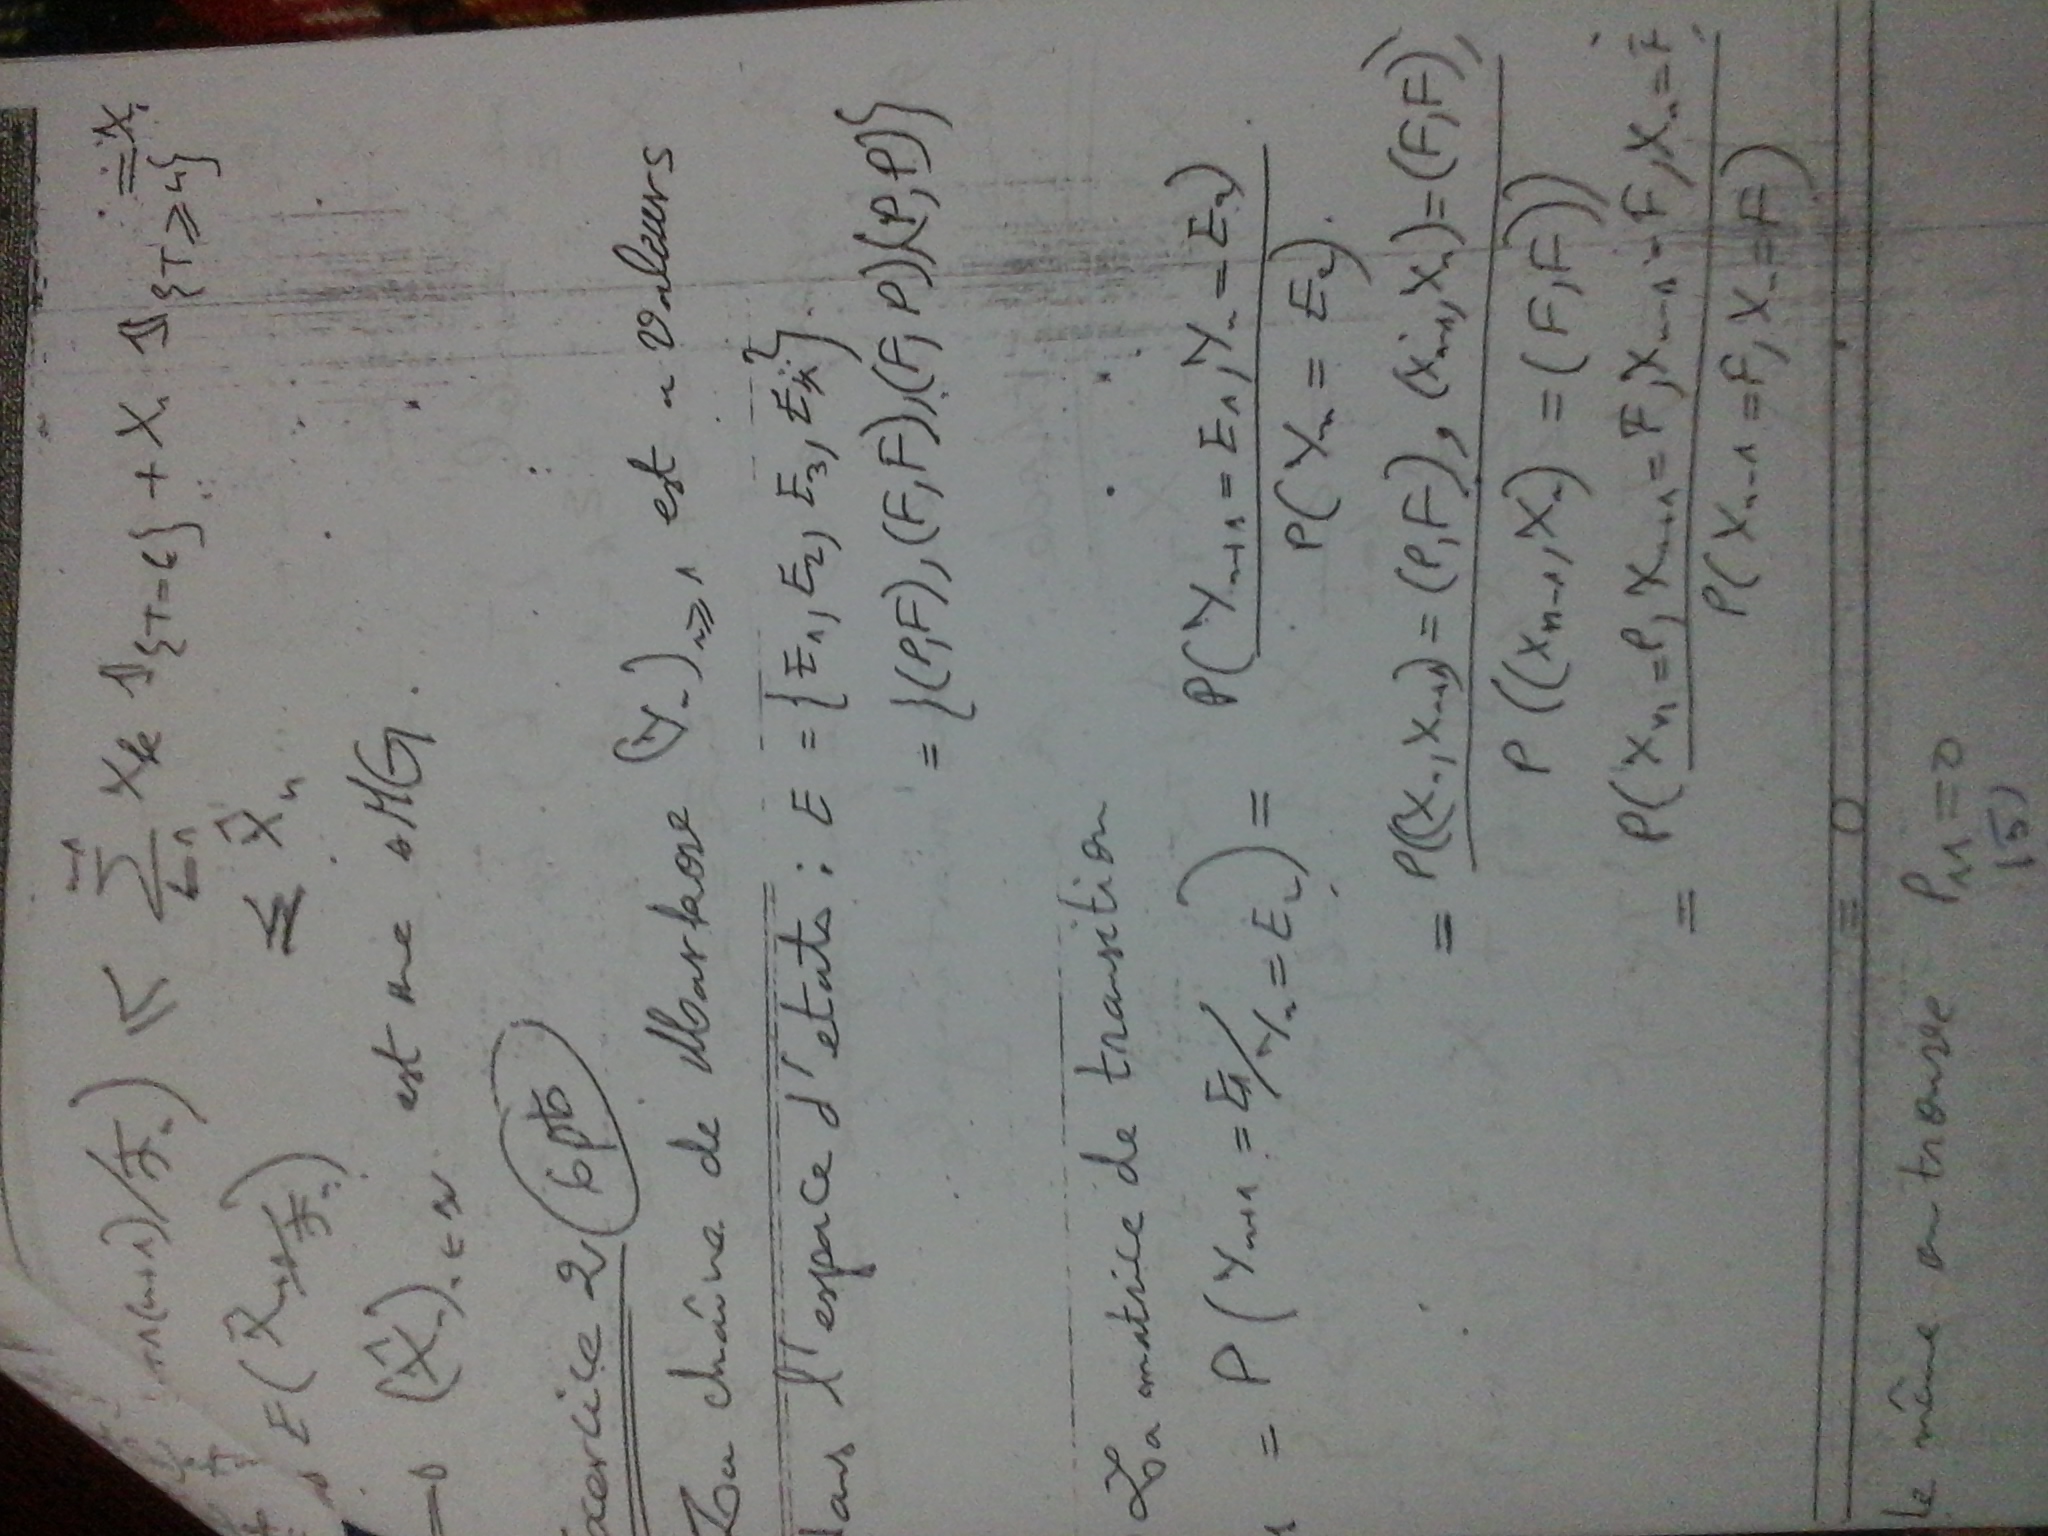 n(n+1)/F_n) ≤ Σ X_k 1_{T=k} + X_n 1_{T≥n}
E(X̂_{n+1}/F_n) ≤ X̂_n
(X̂_n)_{n∈N} est une sMG.
xercice 2, (6 pts)
La chaîne de Markov (Y_n)_{n≥1} est a valeurs
dans l'espace d'etats : E = {E_1, E_2, E_3, E_4}.
= {(P,F), (F,F), (F,P) (P,P)}
La matrice de transition
= P(Y_{n+1} = E_1 / Y_n = E_2) = P(Y_{n+1} = E_1, Y_n = E_2) / P(Y_n = E_2)
= P((X_n, X_{n+1}) = (P,F), (X_{n-1}, X_n) = (F,F)) / P((X_{n-1}, X_n) = (F,F))
= P(X_n = P, X_{n+1} = F, X_{n-1} = F, X_n = F) / P(X_{n-1} = F, X_n = F)
= 0
le même on trouve P_{11} = 0